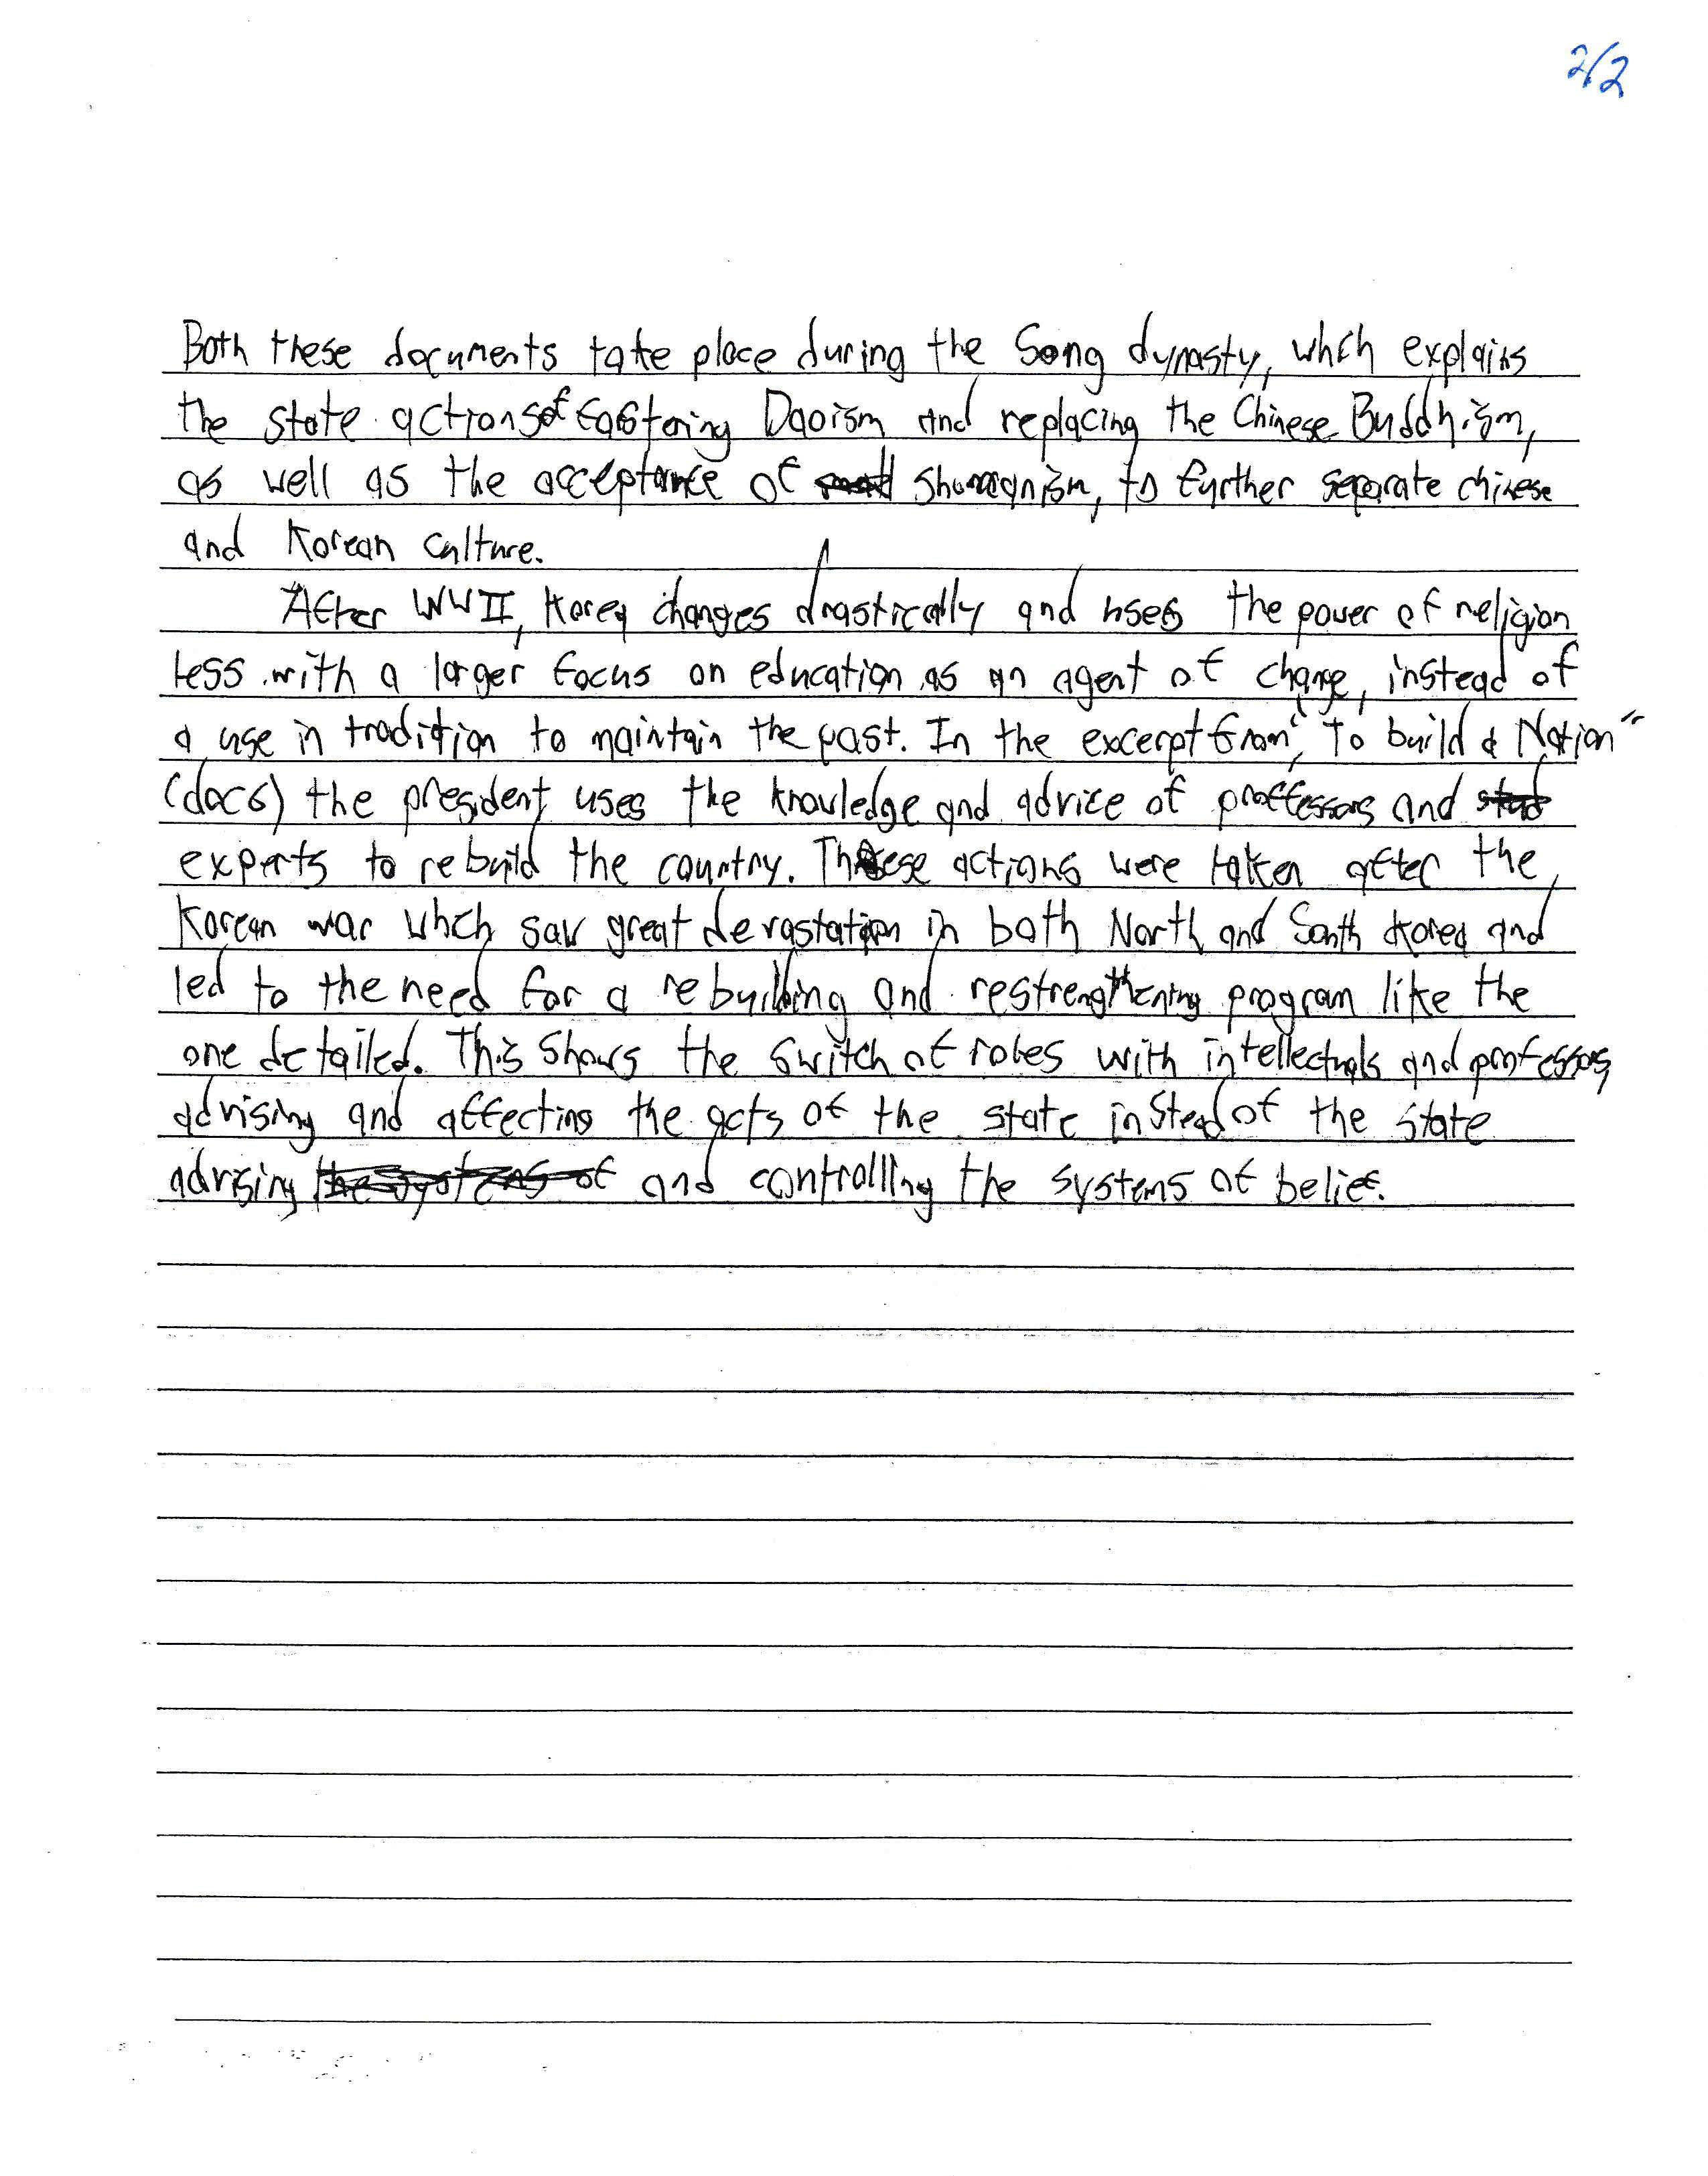 2/2
Both these documents take place during the Song dynasty, whch explains
the state actions of fostering Daoism and replacing the Chinese Buddhism,
as well as the acceptance of shamanism, to further separate chinese
and Korean culture.
After WWII, Korea changes drastically and uses the power of religion
less with a larger focus on education as an agent of change, instead of
a use in tradition to maintain the past. In the excerpt from "To build a Nation"
(doc6) the president uses the knowledge and advice of proffessors and
experts to rebuild the country. These actions were taken after the
Korean war whch saw great devastation in both North and South Korea and
led to the need for a rebuilding and restrengthening program like the
one detailed. This shows the switch of roles with intellectuals and professors,
advising and affecting the acts of the state instead of the state
advising and controlling the systems of belief.